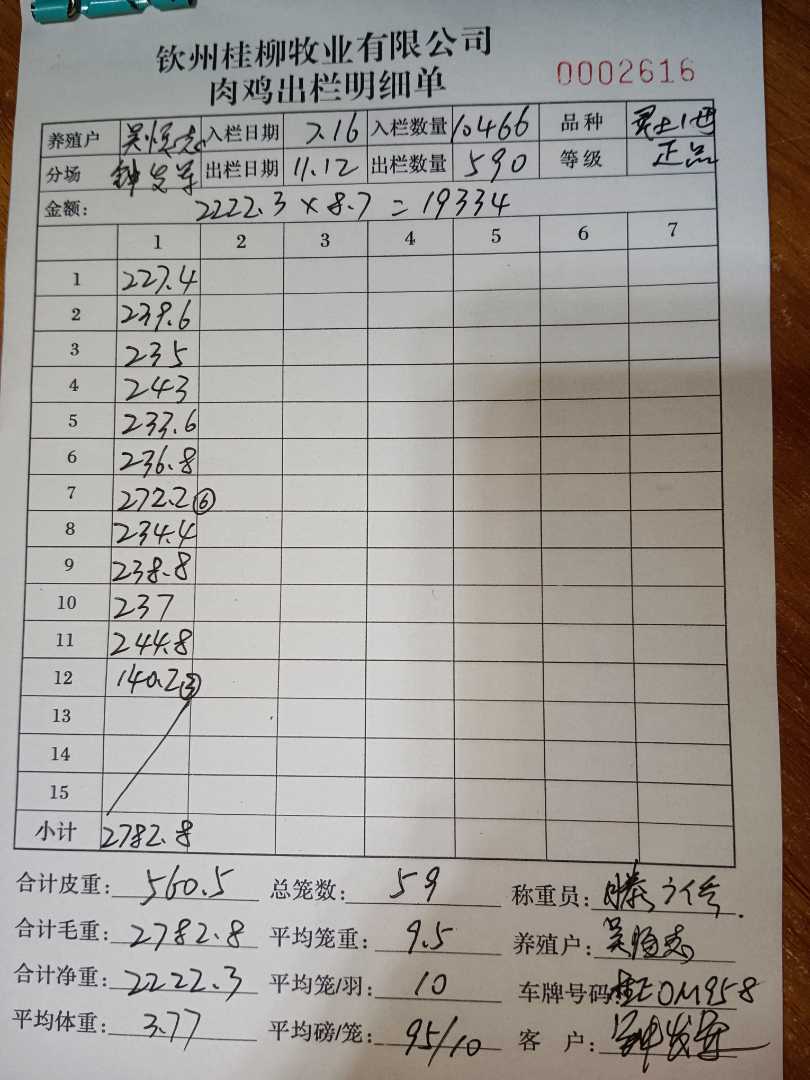 钦州桂柳牧业有限公司
肉鸡出栏明细单
0002616
养殖户 吴恒志 入栏日期 7.16 入栏数量 10466 品种 灵土1西
分场 钟发军 出栏日期 11.12 出栏数量 590 等级 正品
金额: 2222.3 × 8.7 = 19334
1 2 3 4 5 6 7
1 227.4
2 239.6
3 235
4 243
5 233.6
6 236.8
7 272.2 ⑥
8 234.4
9 238.8
10 237
11 244.8
12 140.2 ③
13
14
15
小计 2782.8
合计皮重: 560.5 总笼数: 59 称重员:
合计毛重: 2782.8 平均笼重: 9.5 养殖户: 吴恒志
合计净重: 2222.3 平均笼/羽: 10 车牌号码: 桂E0M958
平均体重: 3.77 平均磅/笼: 95/10 客户: